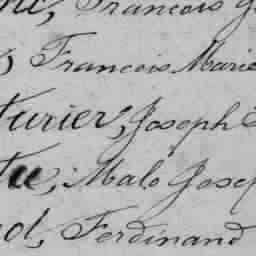 François
, François Marie
turier, Joseph
tu, Malo Josep
d, Ferdinand